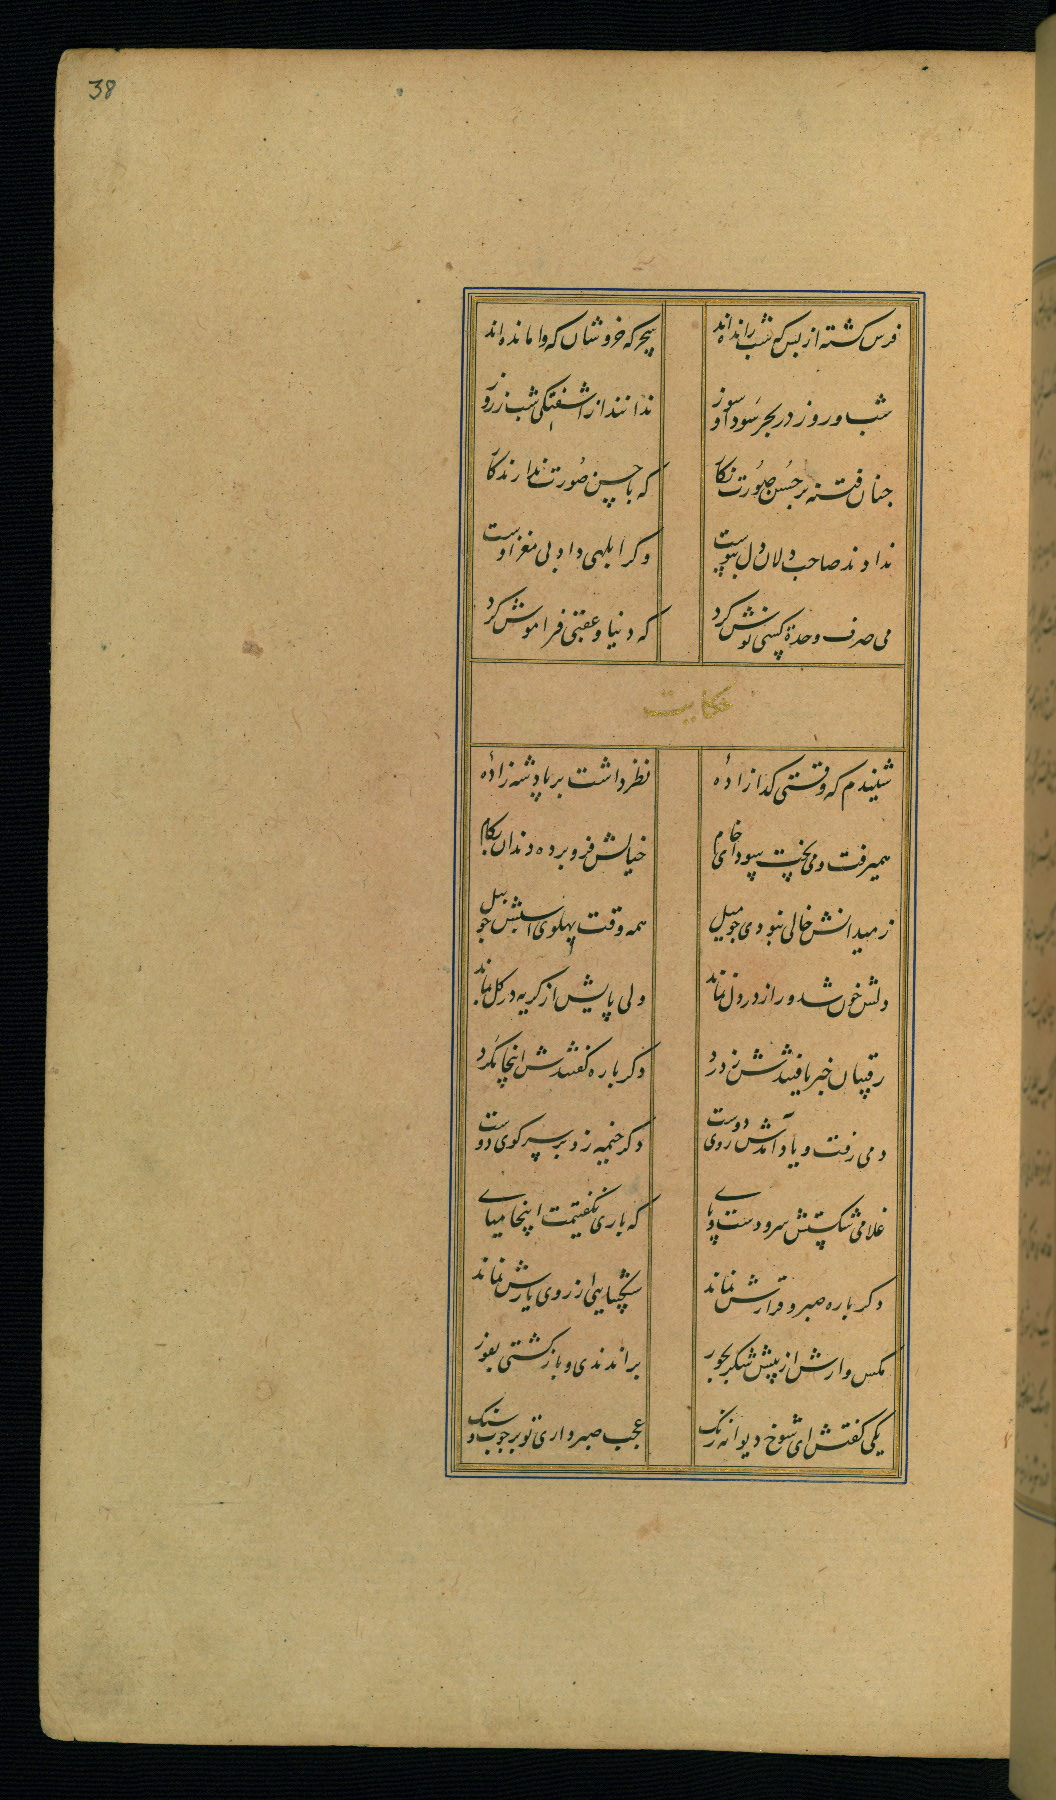 38
فرس کشته از بس که شب رانده‌اند سحرکه خروشان که وامانده‌اند
شب و روز در بحر سودا و سوز ندانند از آشفتکی شب ز روز
چنان فتنه بر حسن صورت نکار که با حسن صورت ندارند کار
ندادند صاحب دلان دل بپوست وکر ابلهی داد بی مغز اوست
می صرف وحدة کسی نوش کرد که دنیا و عقبی فراموش کرد
حکایت
شنیدم که وقتی کدازادهٔ نظر داشت بر پادشه زادهٔ
همیرفت و می پخت سودای خام خیالش فرو برده دندان بکام
ز میدانش خالی نبودی چو میل همه وقت پهلوی اسبش چو پیل
دلش خون شد و راز در دل بماند ولی پایش از کریه در کل بماند
رقیبان خبر یافتندش ز درد دکر باره کفتندش اینجا مکرد
دمی رفت و یاد آمدش روی دوست دکر خیمه زد بر سر کوی دوست
غلامی شکستش سر و دست و پای که باری نکفتیمت اینجا میای
دکر باره صبر و قرارش نماند شکیبایی از روی یارش نماند
مکس وارش از پیش شکر بجور براندندی و بازکشتی بفور
یکی کفتش ای شوخ دیوانه رنک عجب صبر داری تو بر چوب و سنک